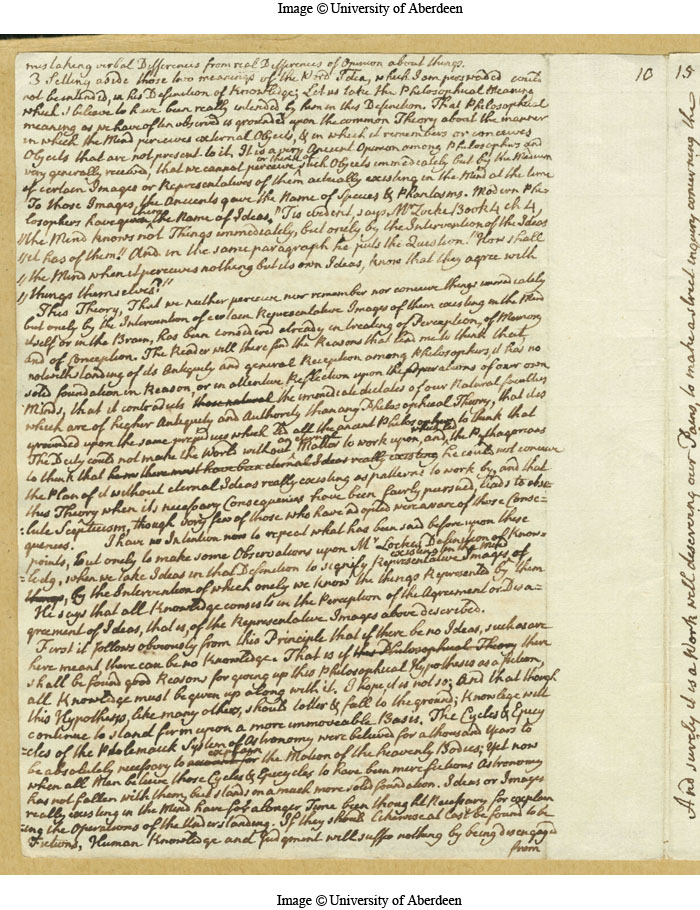 Image © University of Aberdeen
mistaking verbal Differences from real Differences of Opinion about things.
3 Setting aside those two meanings of the Word Idea, which I am perswaded could
not be intended, in his Definition of Knowledge; Let us take the Philosophical Meaning
which I believe to have been really intended by him in this Definition. That Philosophical
meaning as we have often observed is grounded upon the common Theory about the manner
in which the Mind perceives external Objects, & in which it remembers or conceives
Objects that are not present to it. It is a very Ancient Opinion among Philosophers and
very generally received, that we cannot perceive or think of such Objects immediately but by the Medium
of certain Images or Representatives of them actually existing in the Mind at the time
To those Images, the Ancients gave the Name of Species & Phantasms. Modern Phi-
losophers have given them the Name of Ideas, "Tis evident, says Mr Locke Book 4 ch 4,
"the Mind knows not Things immediately, but onely by the Intervention of the Ideas
"it has of them." And in the same paragraph he puts the Question. "How shall
"the Mind when it perceives nothing but its own Ideas, know that they agree with
"things themselves?"
This Theory, That we neither perceive nor remember nor conceive things immediately
but onely by the Intervention of certain Representative Images of them existing in the Mind
itself or in the Brain, has been considered already in treating of Perception, of Memory
and of Conception. The Reader will there find the Reasons that lead me to think that
notwithstanding of its Antiquity and general Reception among Philosophers, it has no
solid foundation in Reason, or in attentive Reflection upon the Operations of our own
Minds, that it contradicts those natural the immediate dictates of our Natural faculties
which are of higher Antiquity and Authority than any Philosophical Theory, that it is
grounded upon the same prejudices which led all the ancient Philosophers to think that
The Deity could not make the World without Matter to work upon, and, the Pythagoreans
to think that eternal Ideas really existing he could not conceive
the Plan of it without eternal Ideas really existing as patterns to work by, and that
this Theory when its necessary Consequences have been fairly pursued, leads to abso-
lute Scepticism, though very few of those who have adopted were aware of those Conse=
quences. I have no Intention now to repeat what has been said before upon these
points, but onely to make some Observations upon Mr Lockes Definition of Know-
ledg, when we take Ideas in that Definition to signify Representative Images of existing in the mind
things, by the Intervention of which onely we know the things Represented by them
He says that all Knowledge consists in the Perception of the Agreement or Disa-
greement of Ideas, that is, of the Representative Images above described.
First it follows obviously from this Principle that if there be no Ideas, such as are
here meant there can be no Knowledge. That is if this Philosophical Theory there
shall be found good Reason for giving up this Philosophical Hypothesis as a fiction,
all Knowledge must be given up along with it. I hope it is not so; And that though
this Hypothesis, like many others, should totter & fall to the ground; Knowlege will
continue to stand firm upon a more immoveable Basis. The Cycles & Epicy
=cles of the Ptolemaick System of Astronomy were believed for a thousand Years to
be absolutely necessary to explain the Motion of the Heavenly Bodies; Yet now
when all Men believe those Cycles & Epicycles to have been mere fictions Astronomy
has not fallen with them, but stands on a much more solid foundation. Ideas or Images
really existing in the Mind have for a longer Time been thought Necessary for explain
ing the Operations of the Understanding. If they should likewise at last be found to be
Fictions, Human Knowledge and Judgment will suffer nothing by being disengaged
from
10
15
And surely it is a Work well deserving our Pains, to make a strict inquiry concerning the
Image © University of Aberdeen